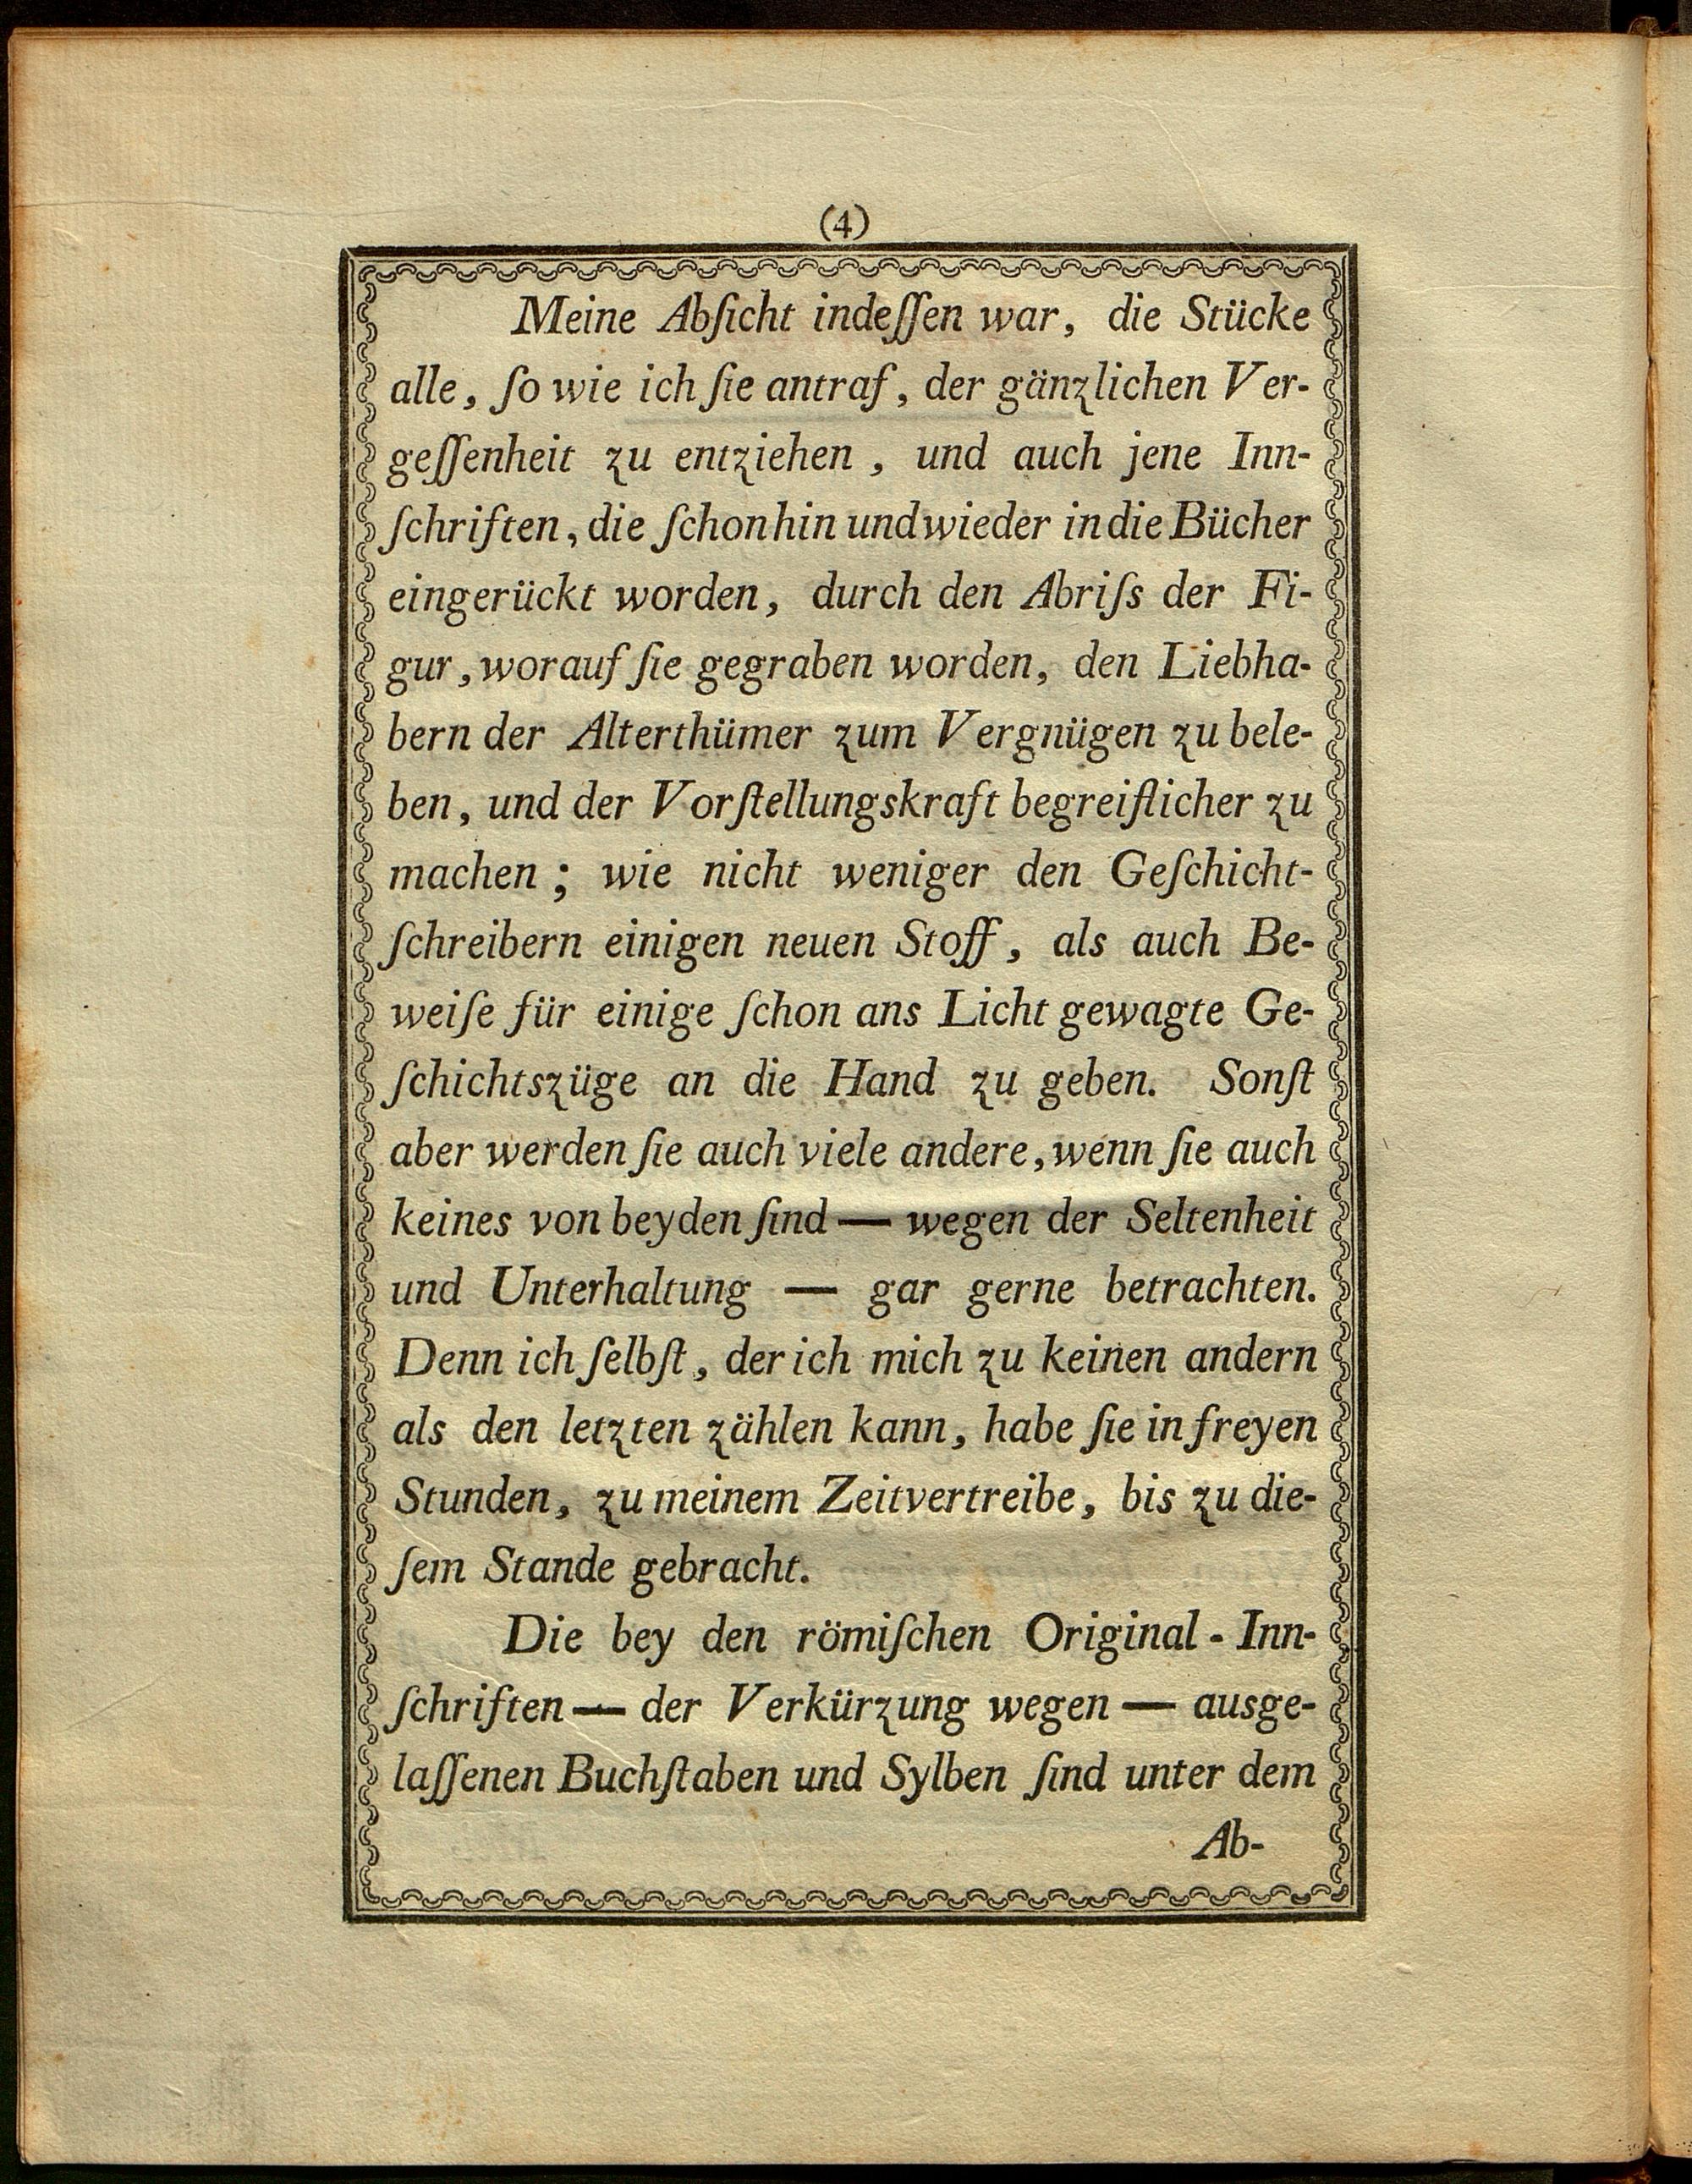 (4)
Meine Abſicht indeſſen war, die Stücke
alle, ſo wie ich ſie antraf, der gänzlichen Ver-
geſſenheit zu entziehen, und auch jene Inn-
ſchriften, die ſchon hin und wieder in die Bücher
eingerückt worden, durch den Abriſs der Fi-
gur, worauf ſie gegraben worden, den Liebha-
bern der Alterthümer zum Vergnügen zu bele-
ben, und der Vorſtellungskraft begreiflicher zu
machen; wie nicht weniger den Geſchicht-
ſchreibern einigen neuen Stoff, als auch Be-
weiſe für einige ſchon ans Licht gewagte Ge-
ſchichtszüge an die Hand zu geben. Sonſt
aber werden ſie auch viele andere, wenn ſie auch
keines von beyden ſind — wegen der Seltenheit
und Unterhaltung — gar gerne betrachten.
Denn ich ſelbſt, der ich mich zu keinen andern
als den letzten zählen kann, habe ſie in freyen
Stunden, zu meinem Zeitvertreibe, bis zu die-
ſem Stande gebracht.
Die bey den römiſchen Original-Inn-
ſchriften — der Verkürzung wegen — ausge-
laſſenen Buchſtaben und Sylben ſind unter dem
Ab-